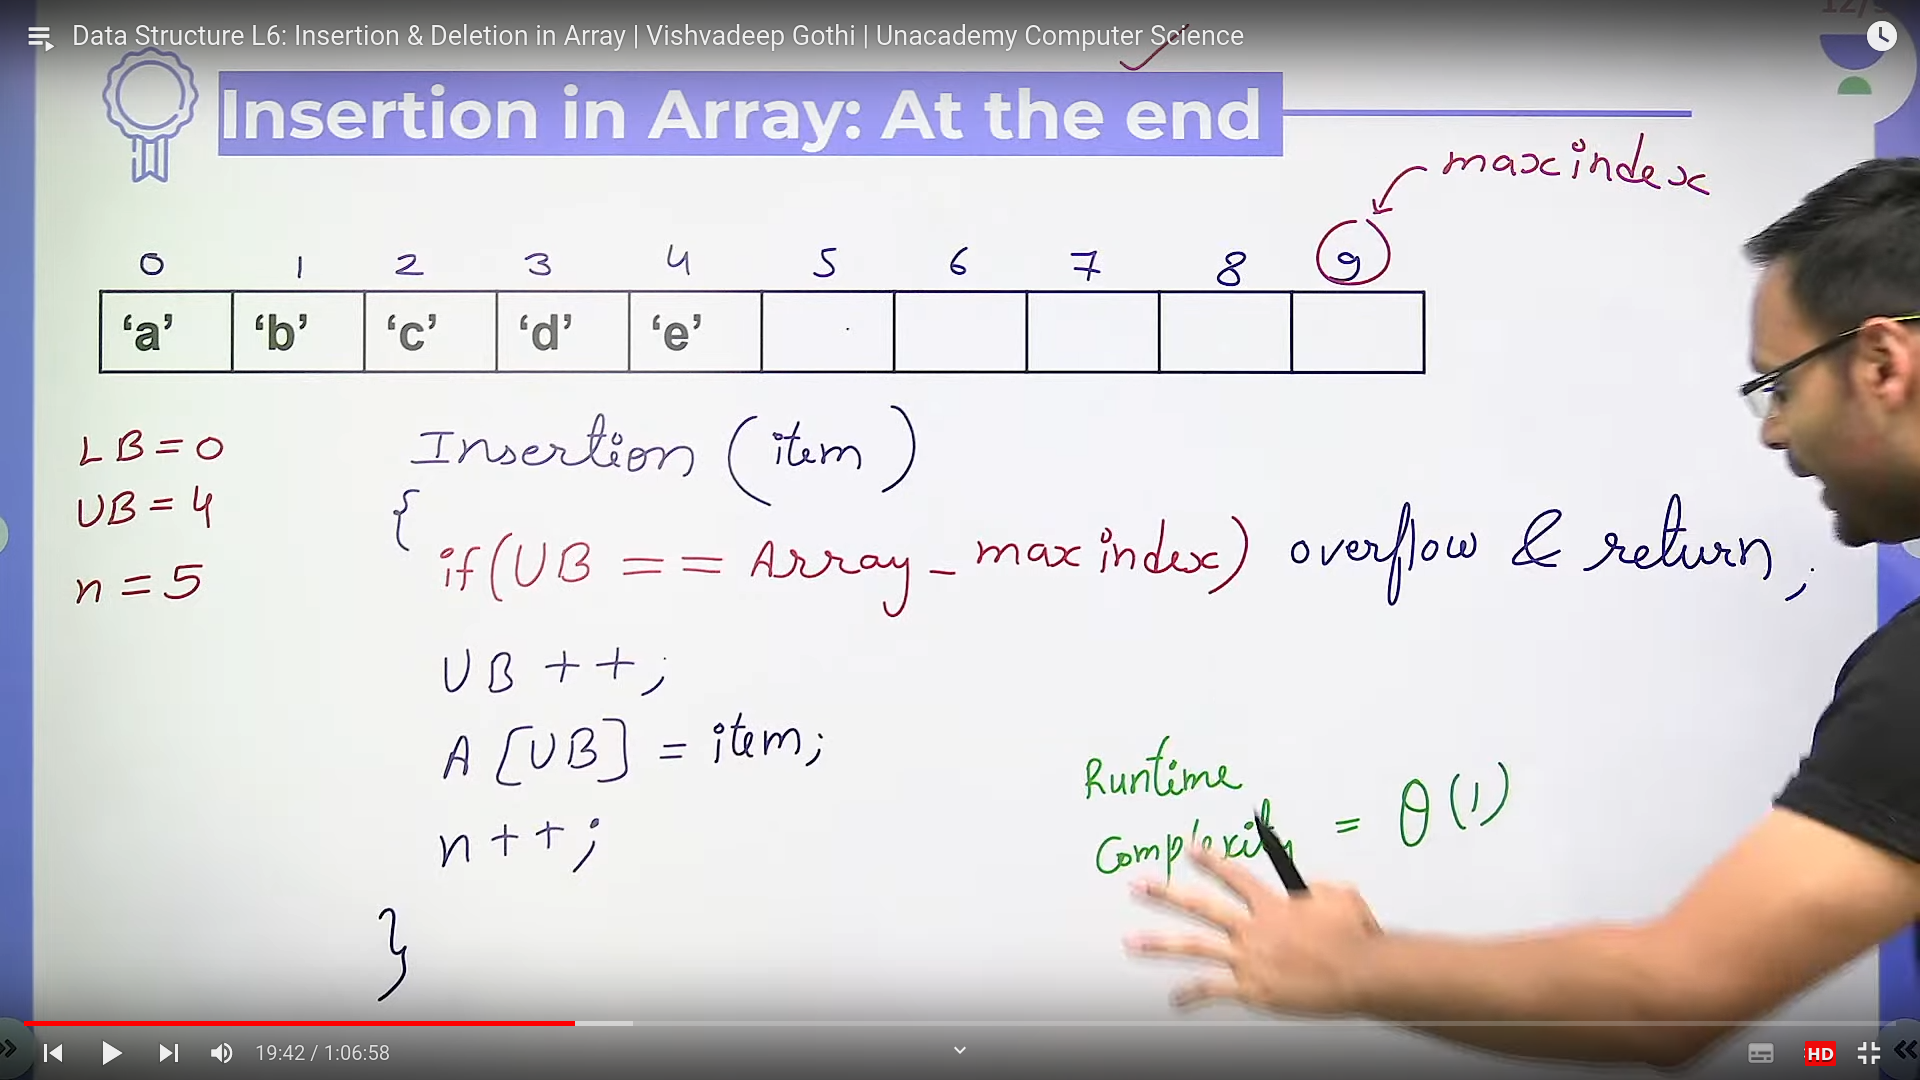 12/
Data Structure L6: Insertion & Deletion in Array | Vishvadeep Gothi | Unacademy Computer Science
Insertion in Array: At the end
maxindex
0 1 2 3 4 5 6 7 8 9
‘a’ ‘b’ ‘c’ ‘d’ ‘e’
LB = 0
UB = 4
n = 5
Insertion (item)
{
if(UB == Array_maxindex) overflow & return;
UB++;
A[UB] = item;
n++;
}
Runtime
Complexity = θ(1)
19:42 / 1:06:58
HD